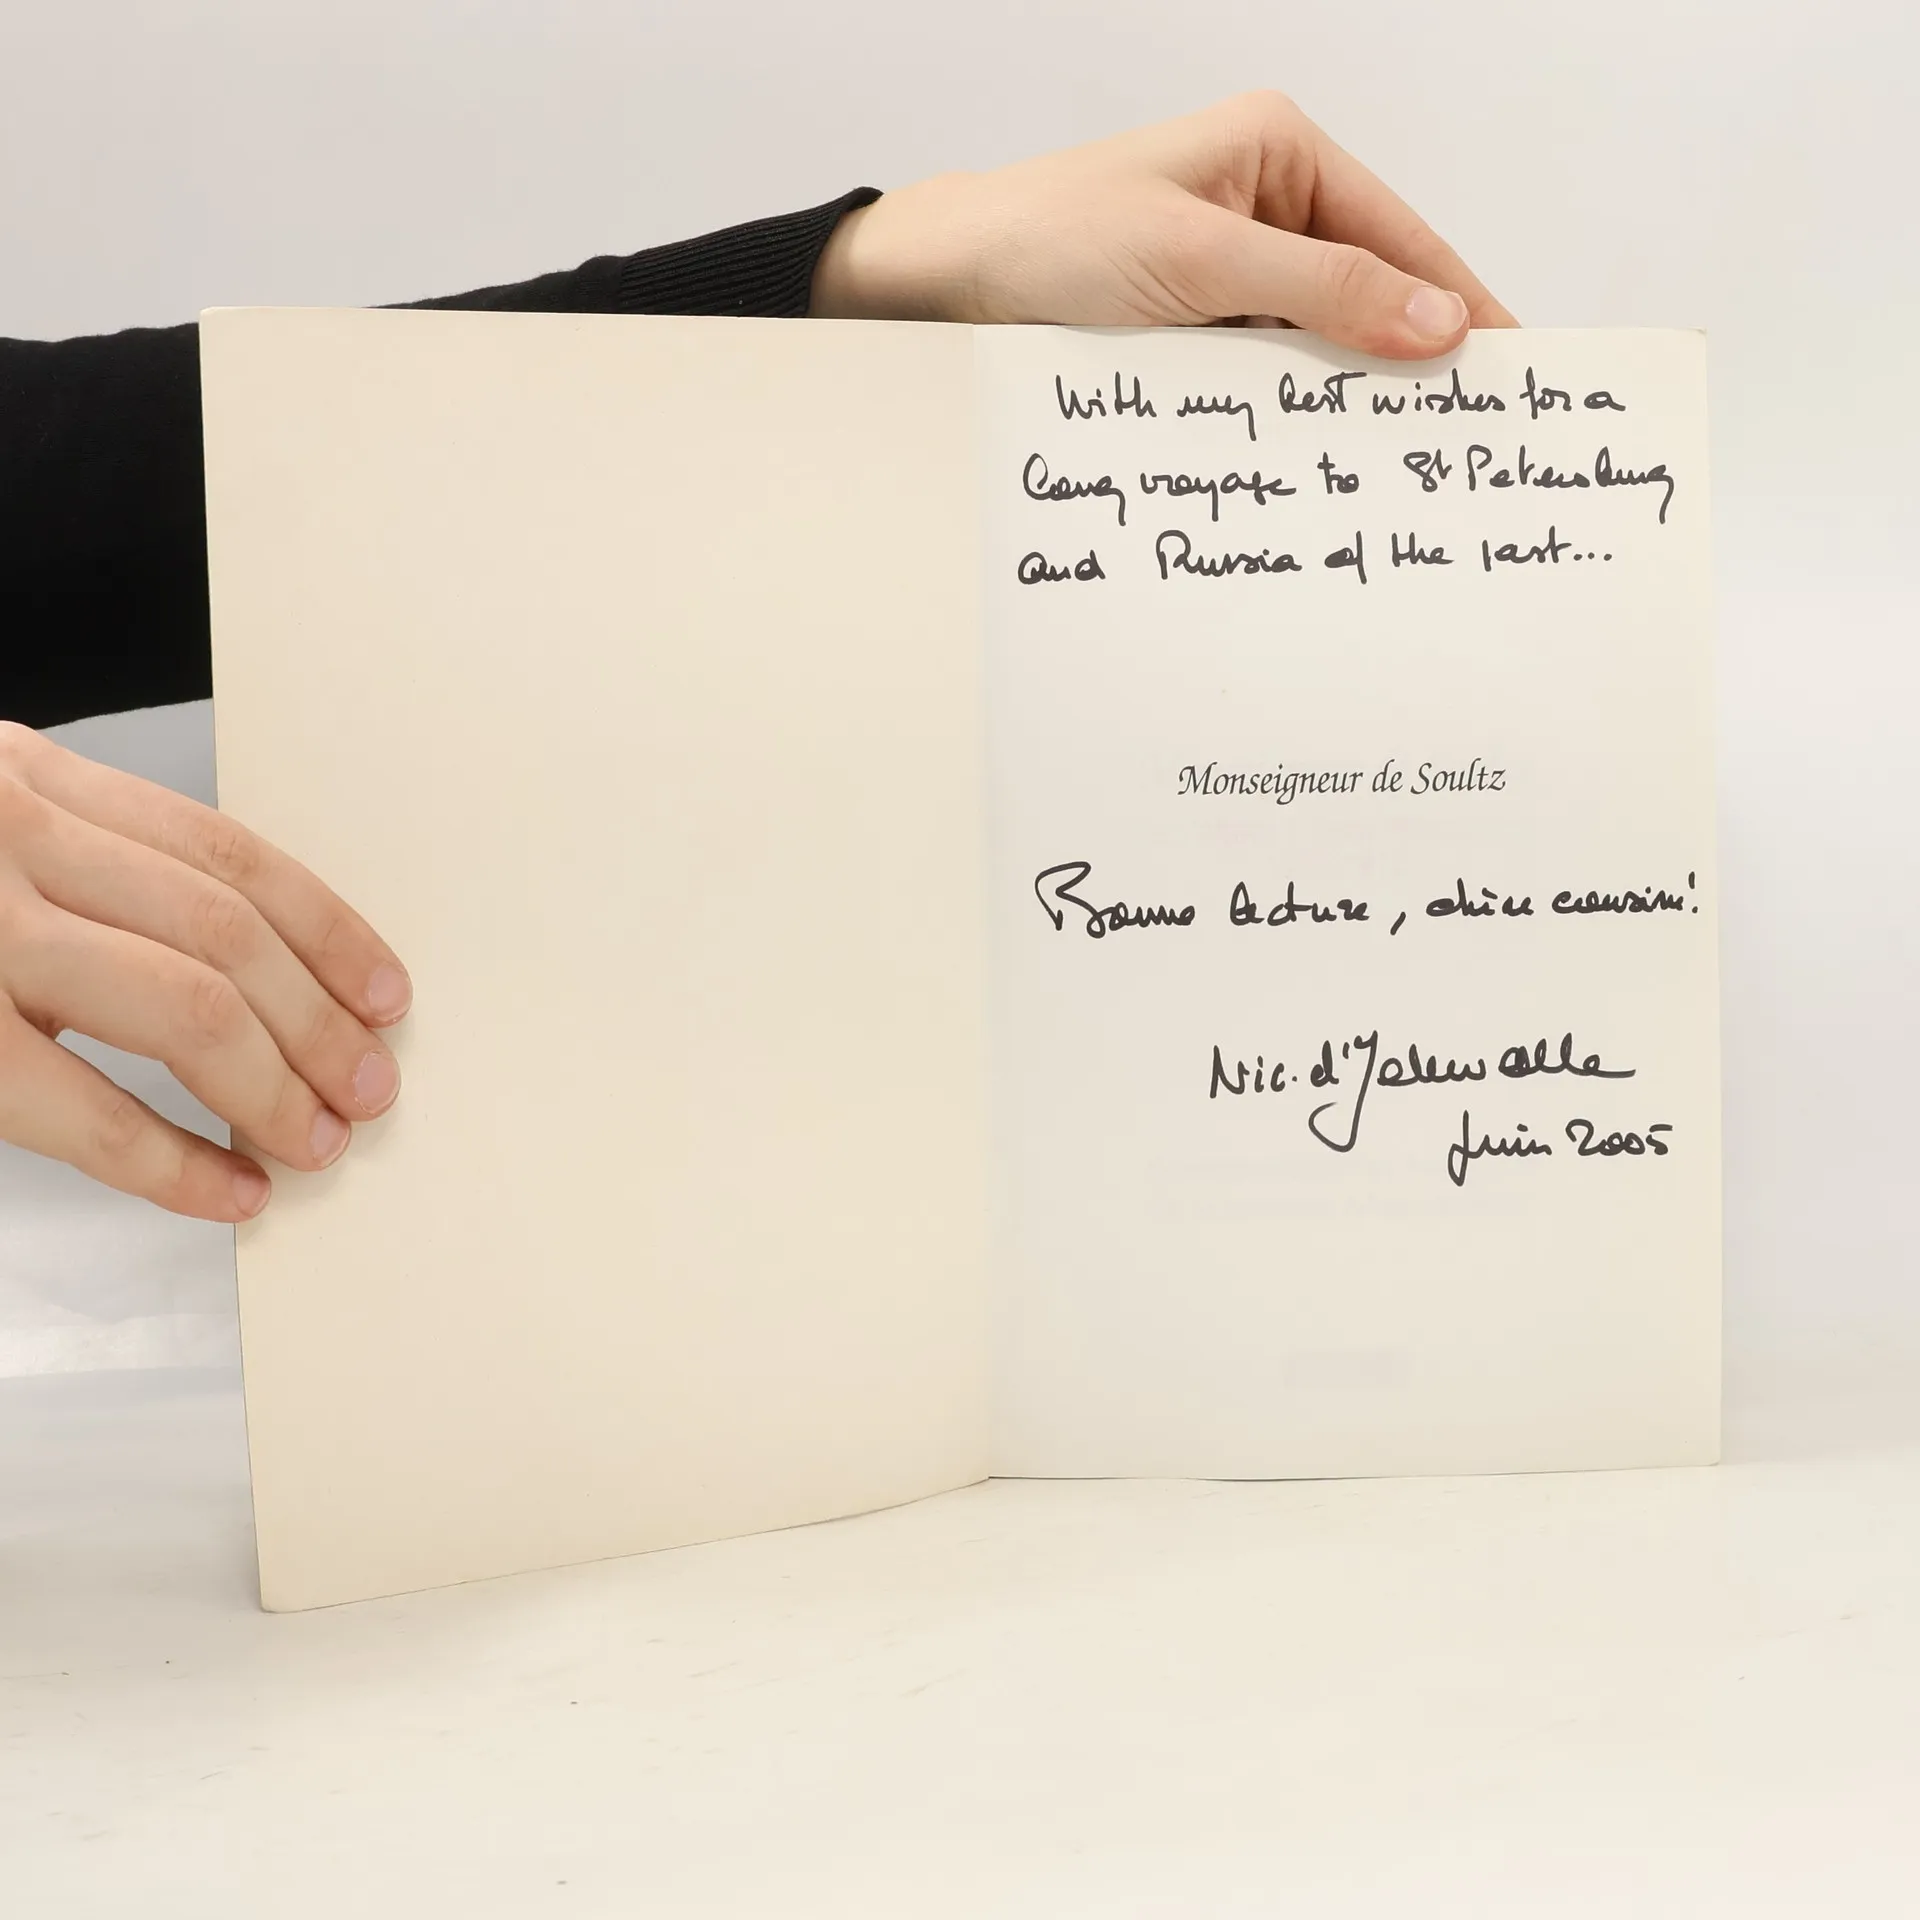 With my best wishes for a
long voyage to St Petersburg
and Russia of the past...
Monseigneur de Soultz
Bonne lecture, chère cousine!
Nic. d'Ydewalle
Juin 2005